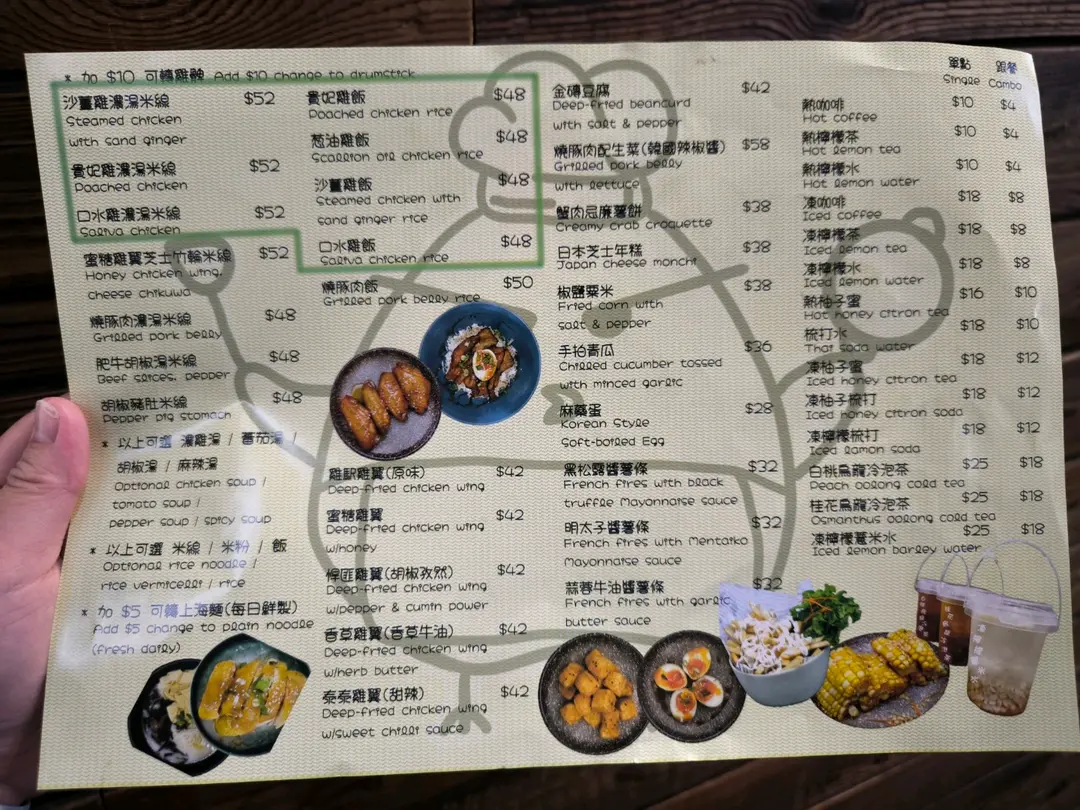 * 加 $10 可轉雞髀 Add $10 change to drumstick
沙薑雞濃湯米線 $52
Steamed chicken
with sand ginger
貴妃雞濃湯米線 $52
Poached chicken
口水雞濃湯米線 $52
Saliva chicken
蜜糖雞翼芝士竹輪米線 $52
Honey chicken wing,
cheese chikuwa
燒豚肉濃湯米線 $48
Grilled pork belly
肥牛胡椒湯米線 $48
Beef slices, pepper
胡椒豬肚米線 $48
Pepper pig stomach
* 以上可選 濃雞湯 / 蕃茄湯 /
胡椒湯 / 麻辣湯
Optional chicken soup /
tomato soup /
pepper soup / spicy soup
* 以上可選 米線 / 米粉 / 飯
Optional rice noodle /
rice vermicelli / rice
* 加 $5 可轉上海麵(每日鮮製)
Add $5 change to plain noodle
(fresh daily)
貴妃雞飯 $48
Poached chicken rice
葱油雞飯 $48
Scallion oil chicken rice
沙薑雞飯 $48
Steamed chicken with
sand ginger rice
口水雞飯 $48
Saliva chicken rice
燒豚肉飯 $50
Grilled pork belly rice
雞翼(原味) $42
Deep-fried chicken wing
蜜糖雞翼 $42
Deep-fried chicken wing
w/honey
悍匪雞翼(胡椒孜然) $42
Deep-fried chicken wing
w/pepper & cumin power
香草雞翼(香草牛油) $42
Deep-fried chicken wing
w/herb butter
泰泰雞翼(甜辣) $42
Deep-fried chicken wing
w/sweet chilli sauce
金磚豆腐 $42
Deep-fried beancurd
with salt & pepper
燒豚肉配生菜(韓國辣椒醬) $58
Grilled pork belly
with lettuce
蟹肉忌廉薯餅 $38
Creamy crab croquette
日本芝士年糕 $38
Japan cheese monchi
椒鹽粟米 $38
Fried corn with
salt & pepper
手拍青瓜 $36
Chilled cucumber tossed
with minced garlic
麻藥蛋 $28
Korean Style
Soft-boiled Egg
黑松露醬薯條 $32
French fires with black
truffle Mayonnaise sauce
明太子醬薯條 $32
French fires with Mentaiko
Mayonnaise sauce
蒜蓉牛油醬薯條 $32
French fires with garlic
butter sauce
單點 跟餐
Single Combo
熱咖啡 $10 $4
Hot coffee
熱檸檬茶 $10 $4
Hot lemon tea
熱檸檬水 $10 $4
Hot lemon water
凍咖啡 $18 $8
Iced coffee
凍檸檬茶 $18 $8
Iced lemon tea
凍檸檬水 $18 $8
Iced lemon water
熱柚子蜜 $16 $10
Hot honey citron tea
梳打水 $18 $10
Thai soda water
凍柚子蜜 $18 $12
Iced honey citron tea
凍柚子梳打 $18 $12
Iced honey citron soda
凍檸檬梳打 $18 $12
Iced lamon soda
白桃烏龍冷泡茶 $25 $18
Peach oolong cold tea
桂花烏龍冷泡茶 $25 $18
Osmanthus oolong cold tea
凍檸檬薏米水 $25 $18
Iced lemon barley water